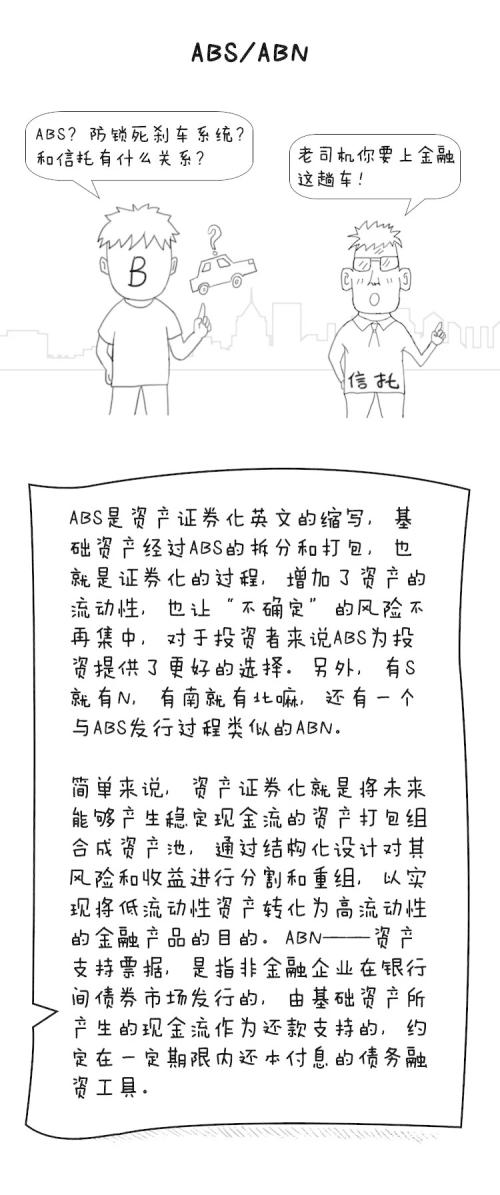 ABS/ABN
ABS？防锁死刹车系统？
和信托有什么关系？
老司机你要上金融
这趟车！
B
?
信托
ABS是资产证券化英文的缩写，基
础资产经过ABS的拆分和打包，也
就是证券化的过程，增加了资产的
流动性，也让“不确定”的风险不
再集中，对于投资者来说ABS为投
资提供了更好的选择。另外，有S
就有N，有南就有北嘛，还有一个
与ABS发行过程类似的ABN。
简单来说，资产证券化就是将未来
能够产生稳定现金流的资产打包组
合成资产池，通过结构化设计对其
风险和收益进行分割和重组，以实
现将低流动性资产转化为高流动性
的金融产品的目的。ABN——资产
支持票据，是指非金融企业在银行
间债券市场发行的，由基础资产所
产生的现金流作为还款支持的，约
定在一定期限内还本付息的债务融
资工具。